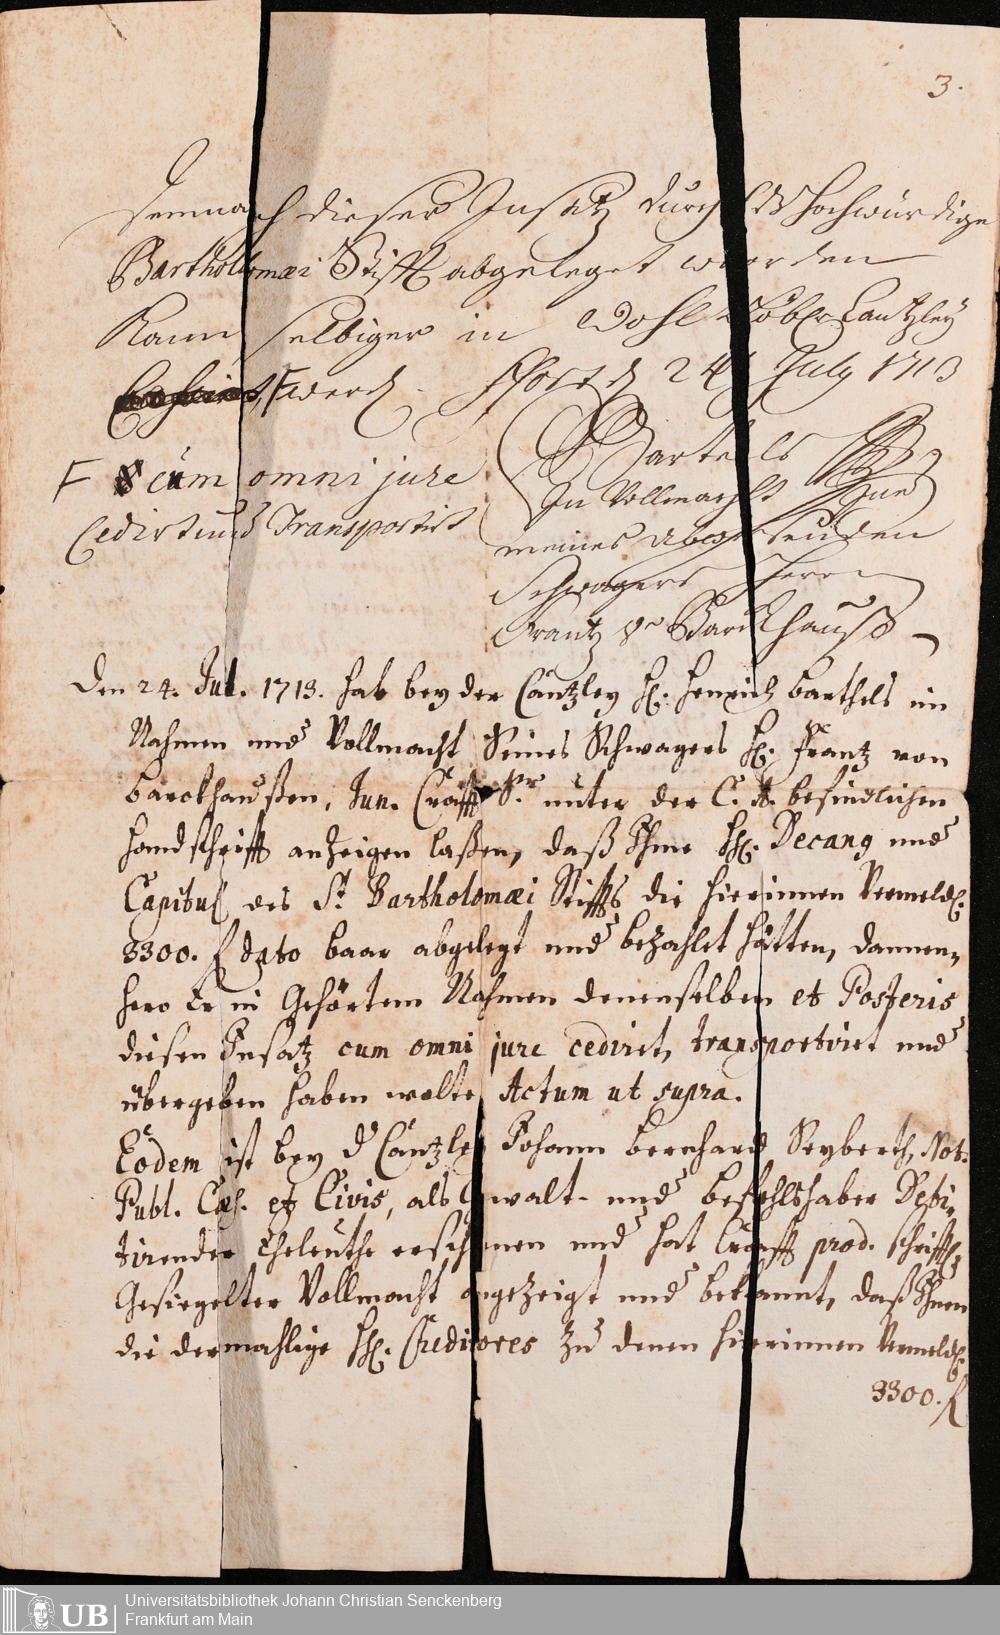 3.
Demnach dieser Insatz durch das Hochwürdige
Bartholomæi Stifft abgeleget worden
Kann selbiger in Wohl Löbl. Cantzley
werden. Ffort d. 24 July 1713
F cum omni jure
Cedirt und Transportirt
Bartels
In Vollmacht
meines abwesenden
Schwagers Herrn
Frantz von Barckhauß
Den 24. Jul. 1713. hat bey der Cantzley H. Henrich Barthels im
Nahmen und Vollmacht Seines Schwagers H. Frantz von
Barckhaußen, Jun. Crafft Sr. unter der C. A. befindlichen
Handschrifft anzeigen laßen, daß Ihme HH. Decang und
Capitul des St. Bartholomæi Stiffts die hierinnen Vermeld.
3300. f dato baar abgelegt und bezahlt hätten, dannen-
hero Er in Gehörtem Nahmen denenselben et Posteris
diesen Insatz cum omni jure cediret, transportiret und
übergeben haben wolte, Actum ut supra.
Eodem ist bey d Cantzley Johann Bernhard Seyberth, Not.
Publ. Cæs. et Civis, als Gewalt- und Befehlshaber Debi-
tirender Eheleuthe erschienen und hat Crafft prod. schrifftl.
Gesiegelter Vollmacht angezeigt und bekannt, daß Ihnen
die dermahlige HH. Creditores zu denen hierinnen Vermeld.
3300. f
UB
Universitätsbibliothek Johann Christian Senckenberg
Frankfurt am Main